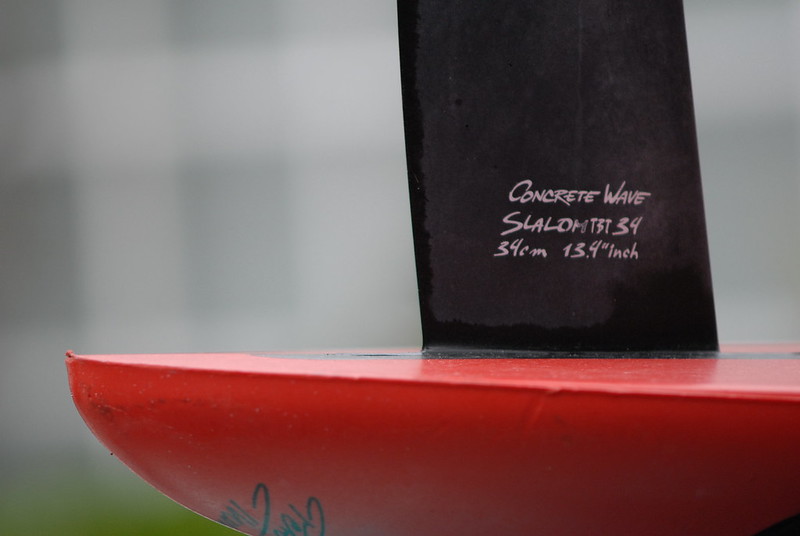 CONCRETE WAVE
SLALOM TST 34
34cm 13.4"inch